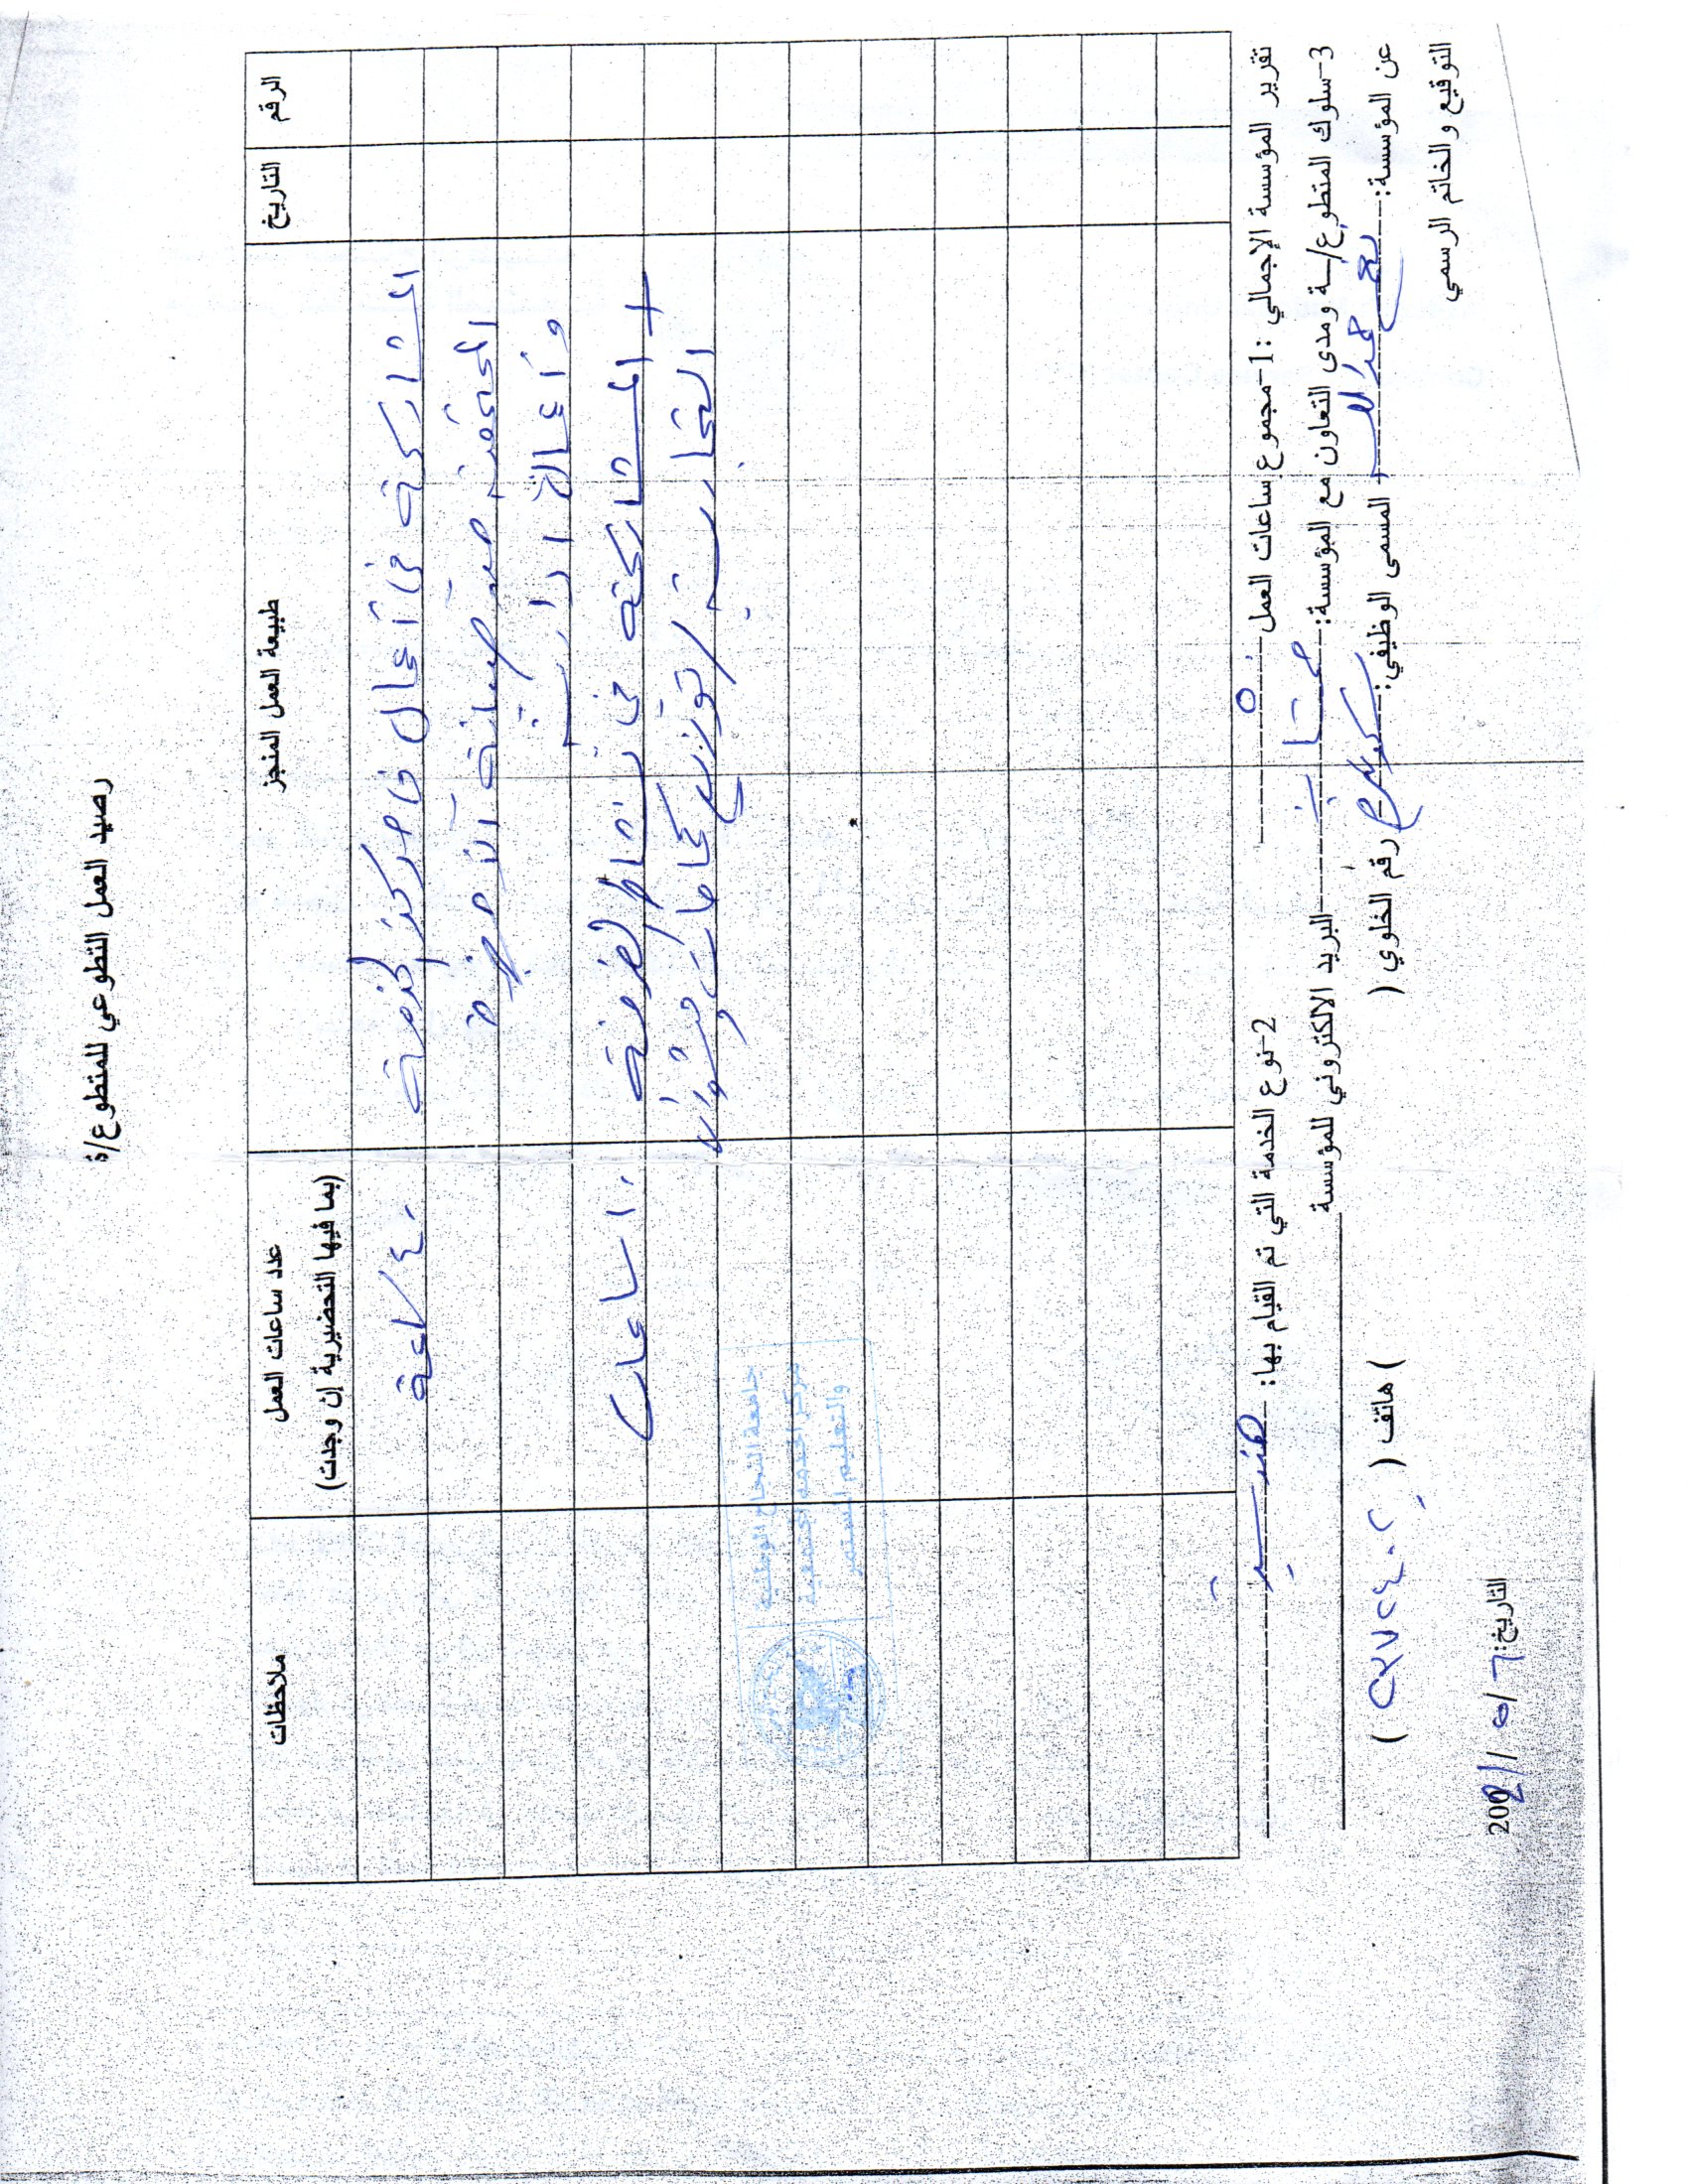 رصيد العمل التطوعي للمتطوع/ة
الرقم التاريخ طبيعة العمل المنجز عدد ساعات العمل ملاحظات
(بما فيها التحضيرية إن وجدت)
المشاركة في أعمال في مركز الخدمة ٤٠ ساعة
المجتمعية من صيانة الأجهزة
وأعمال ادارية
+ المشاركة في نشاط الغرفة ١٠ ساعات
التجارية / توزيع كمامات
جامعة النجاح الوطنية
مركز الخدمة المجتمعية
والتعليم المستمر
تقرير المؤسسة الإجمالي :1-مجموع ساعات العمل ٥٠ 2-نوع الخدمة التي تم القيام بها: هندسية
3-سلوك المتطوع/ـة ومدى التعاون مع المؤسسة: ممتاز البريد الالكتروني للمؤسسة
عن المؤسسة: حمدالله المسمى الوظيفي: رقم الخلوي ( ) هاتف ( ٢٣٧٢٤٠٢ )
التوقيع والخاتم الرسمي
التاريخ: ٦/ ٥ /